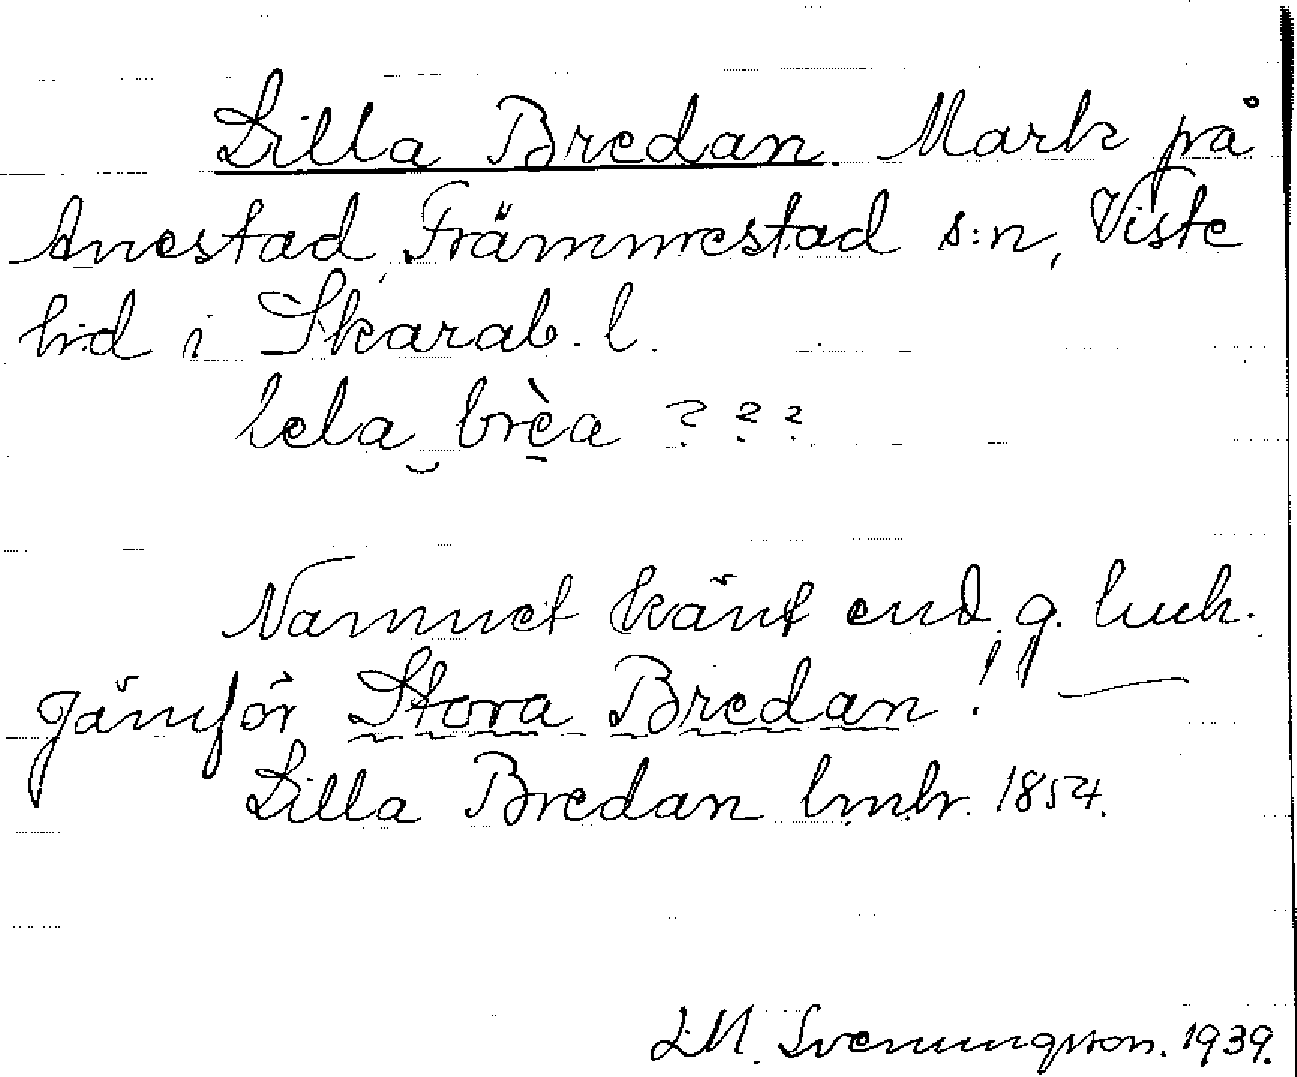 Lilla Bredan. Mark på
Anestad, Främmestad s:n, Viste
hd i Skarab. l.
lela brèa ? ? ?
Namnet känt end. g.
Jämför Stora Bredan!
Lilla Bredan lmh. 1854.
L.M. Svenungsson. 1939.